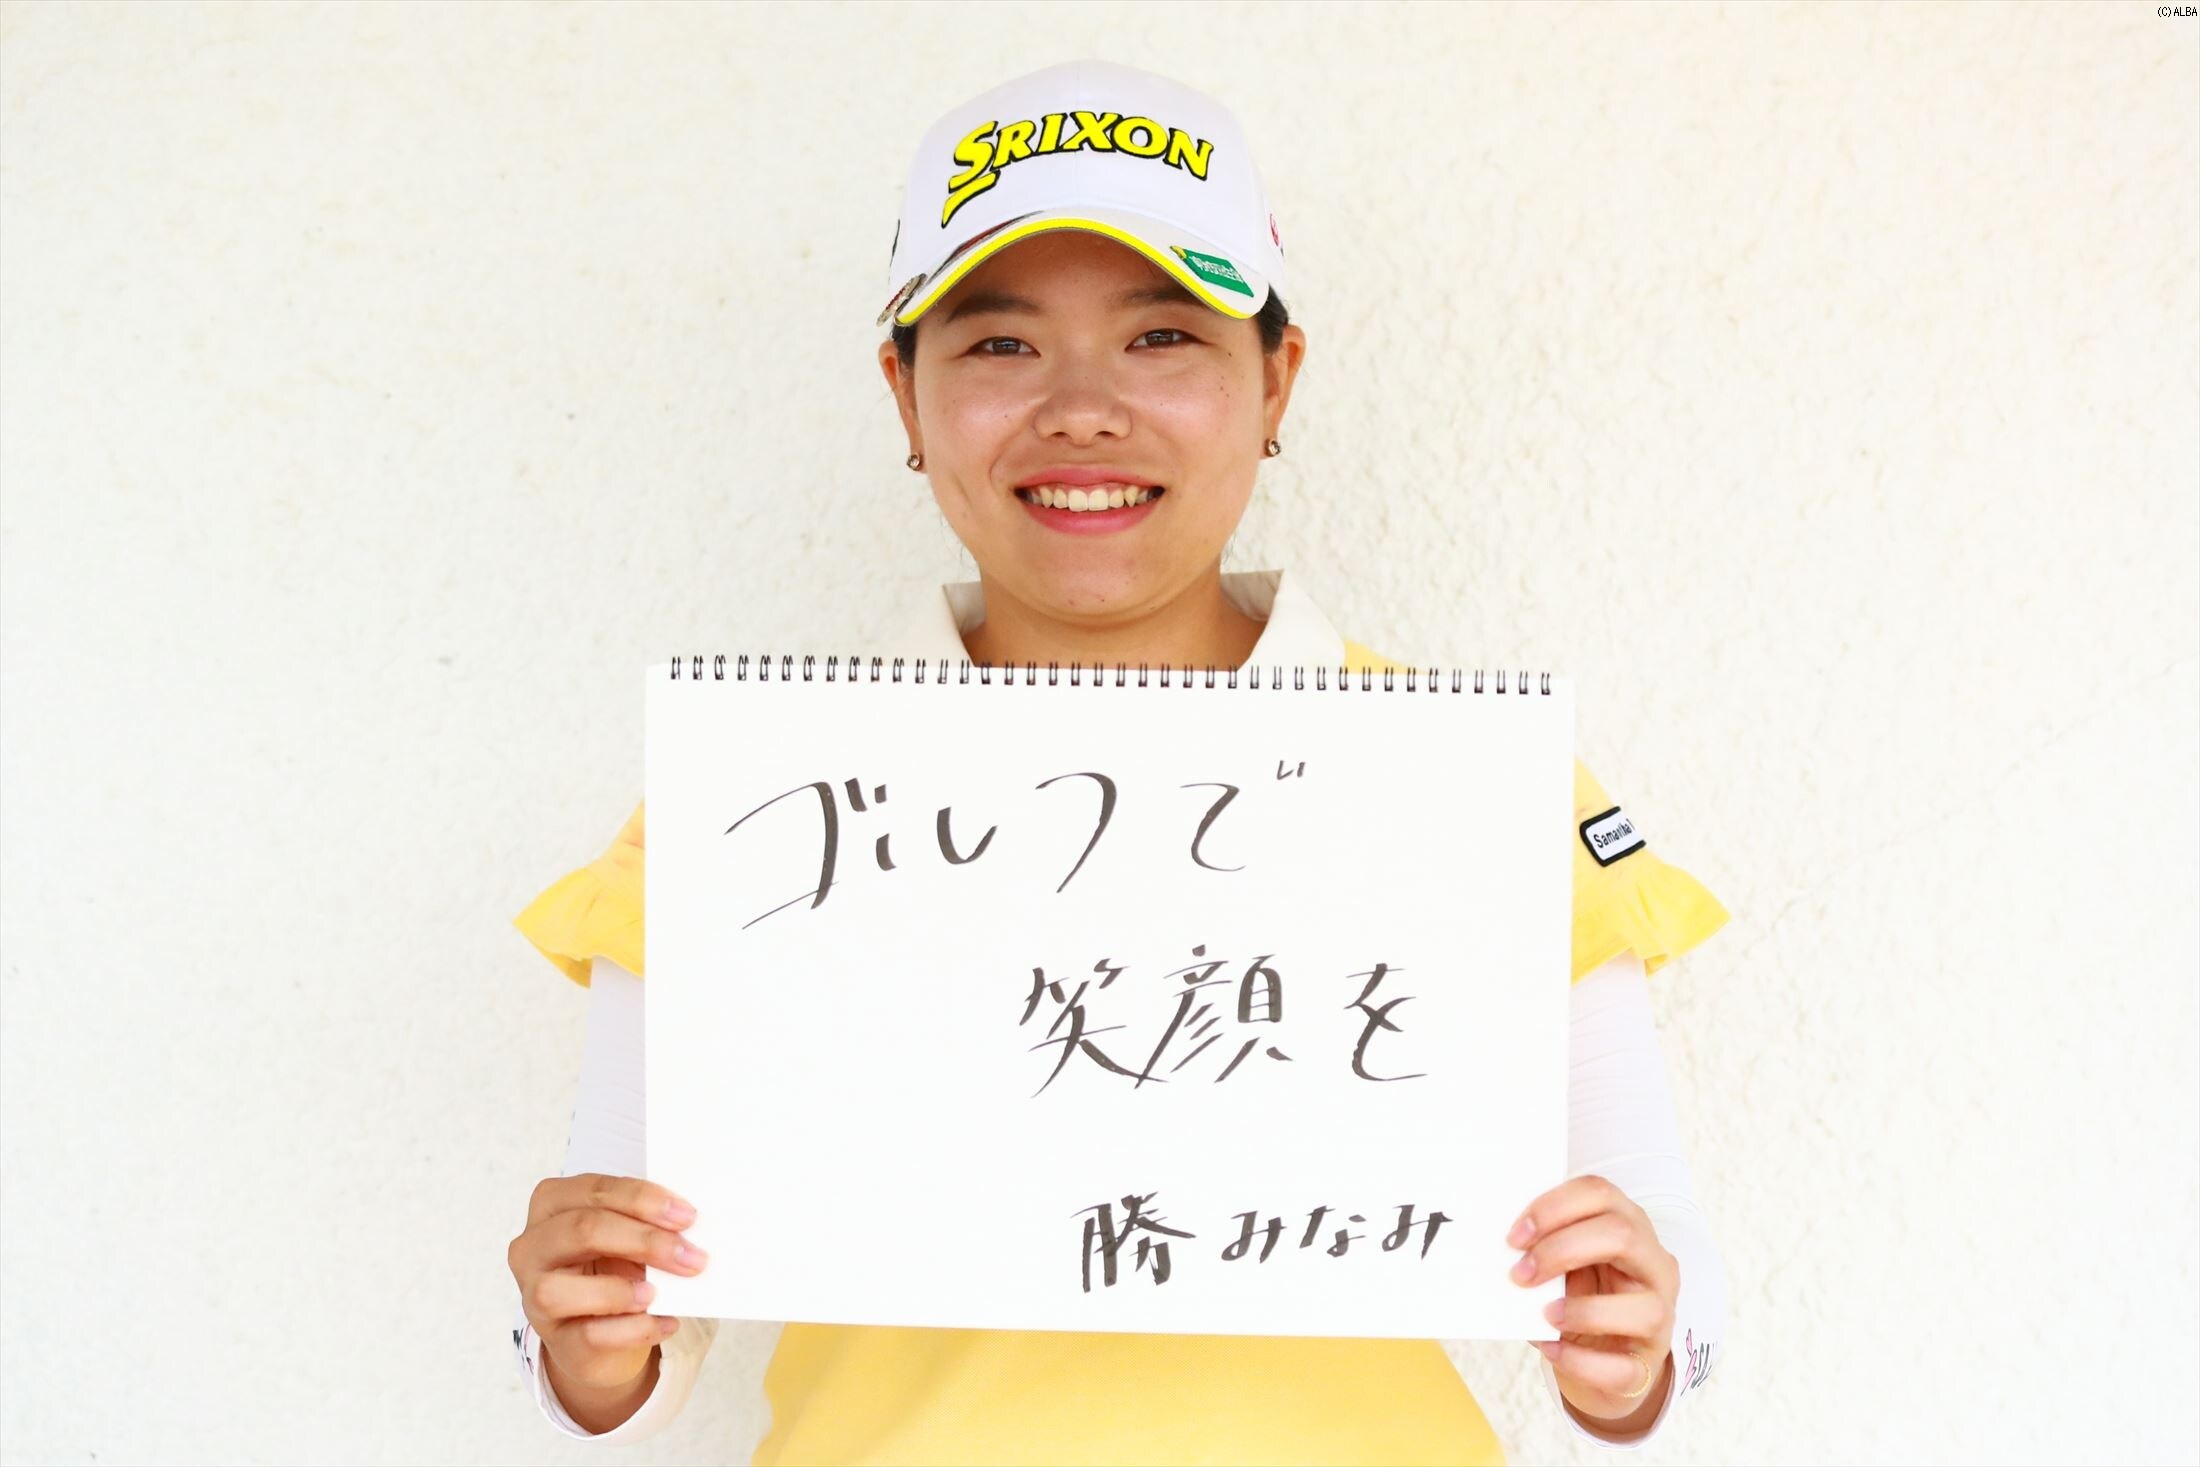 (C)ALBA
SRIXON
ゴルフで
笑顔を
勝みなみ